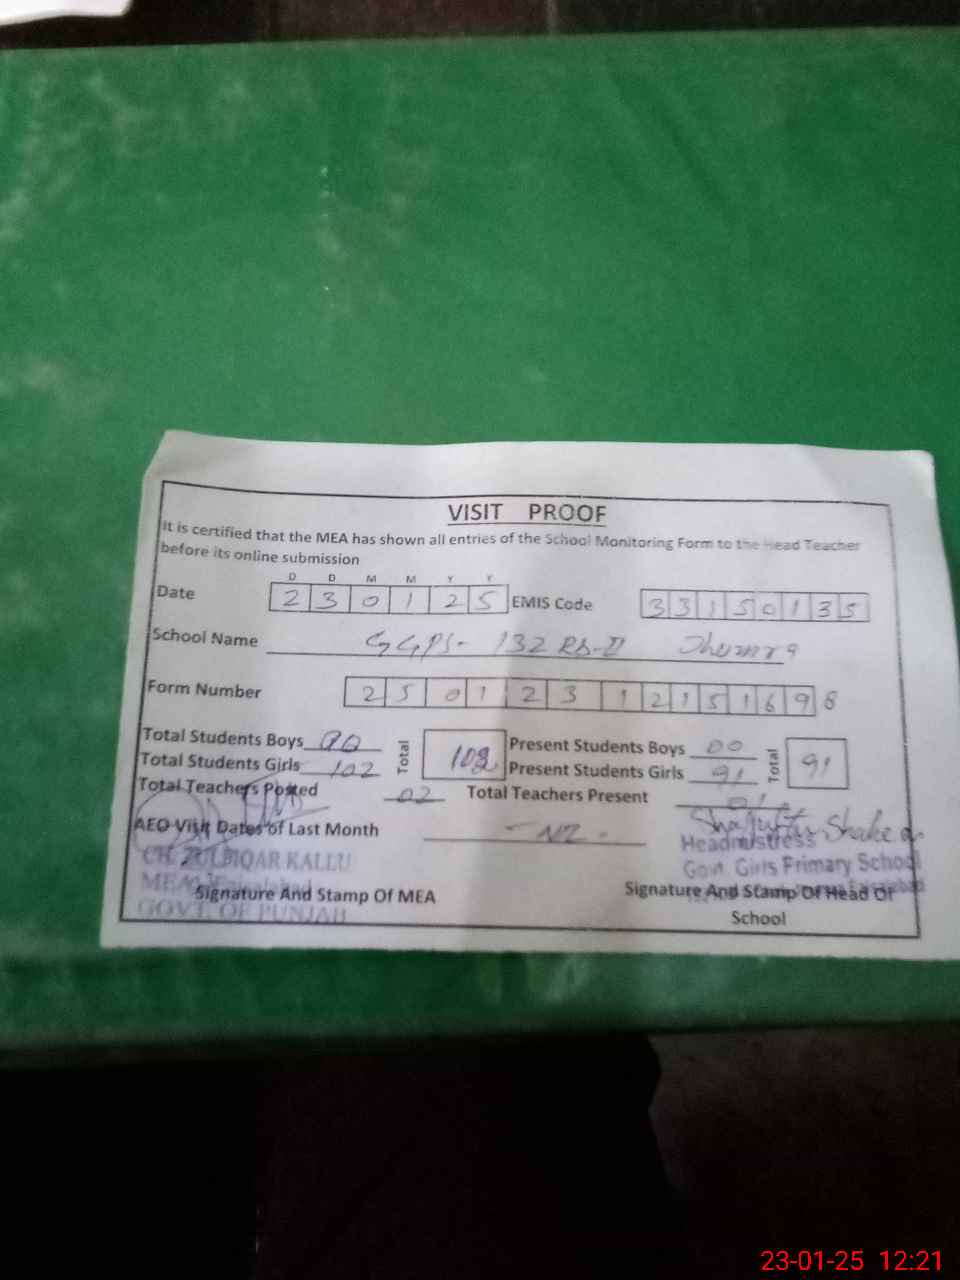 VISIT PROOF
It is certified that the MEA has shown all entries of the School Monitoring Form to the Head Teacher
before its online submission
D D M M Y Y
Date 2 3 0 1 2 5 EMIS Code 3 3 1 5 0 1 3 5
School Name GGPS- 132 RB-II Jhumra
Form Number 2 5 0 1 2 3 1 2 1 5 1 6 9 8
Total Students Boys 00 Total 102 Present Students Boys 00 Total 91
Total Students Girls 102 Present Students Girls 91
Total Teachers Posted 02 Total Teachers Present 01
AEO Visit Dates of Last Month
Headmistress
CH. ZULFIQAR KALLU Govt. Girls Primary School
MEA
Signature And Stamp Of MEA Signature And Stamp Of Head Of
GOVT. OF PUNJAB School
23-01-25 12:21